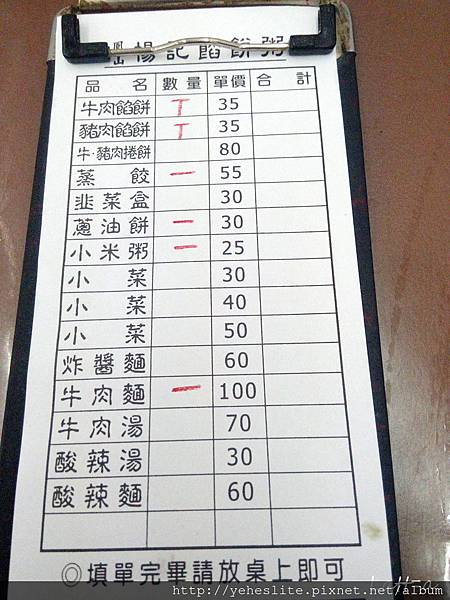 鳳山楊記餡餅粥
品名 數量 單價 合計
牛肉餡餅 丅 35
豬肉餡餅 丅 35
牛·豬肉捲餅 80
蒸餃 一 55
韭菜盒 30
蔥油餅 一 30
小米粥 一 25
小菜 30
小菜 40
小菜 50
炸醬麵 60
牛肉麵 一 100
牛肉湯 70
酸辣湯 30
酸辣麵 60
◎填單完畢請放桌上即可
http://yeheslite.pixnet.net/album